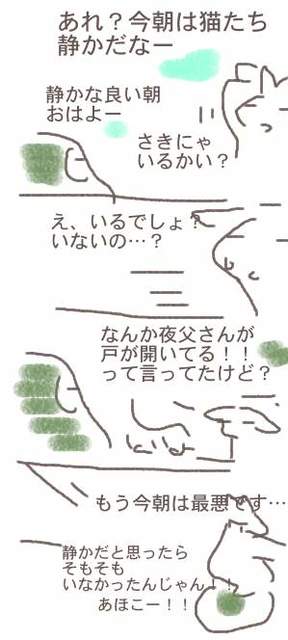 あれ？今朝は猫たち
静かだなー
静かな良い朝
おはよー
さきにゃ
いるかい？
え、いるでしょ？
いないの…？
なんか夜父さんが
戸が開いてる！！
って言ってたけど？
もう今朝は最悪です…
静かだと思ったら
そもそも
いなかったんじゃん！！
あほこー！！